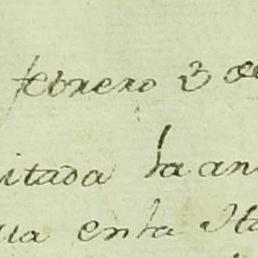 febrero 3 de
itada la an
lla en la Ha